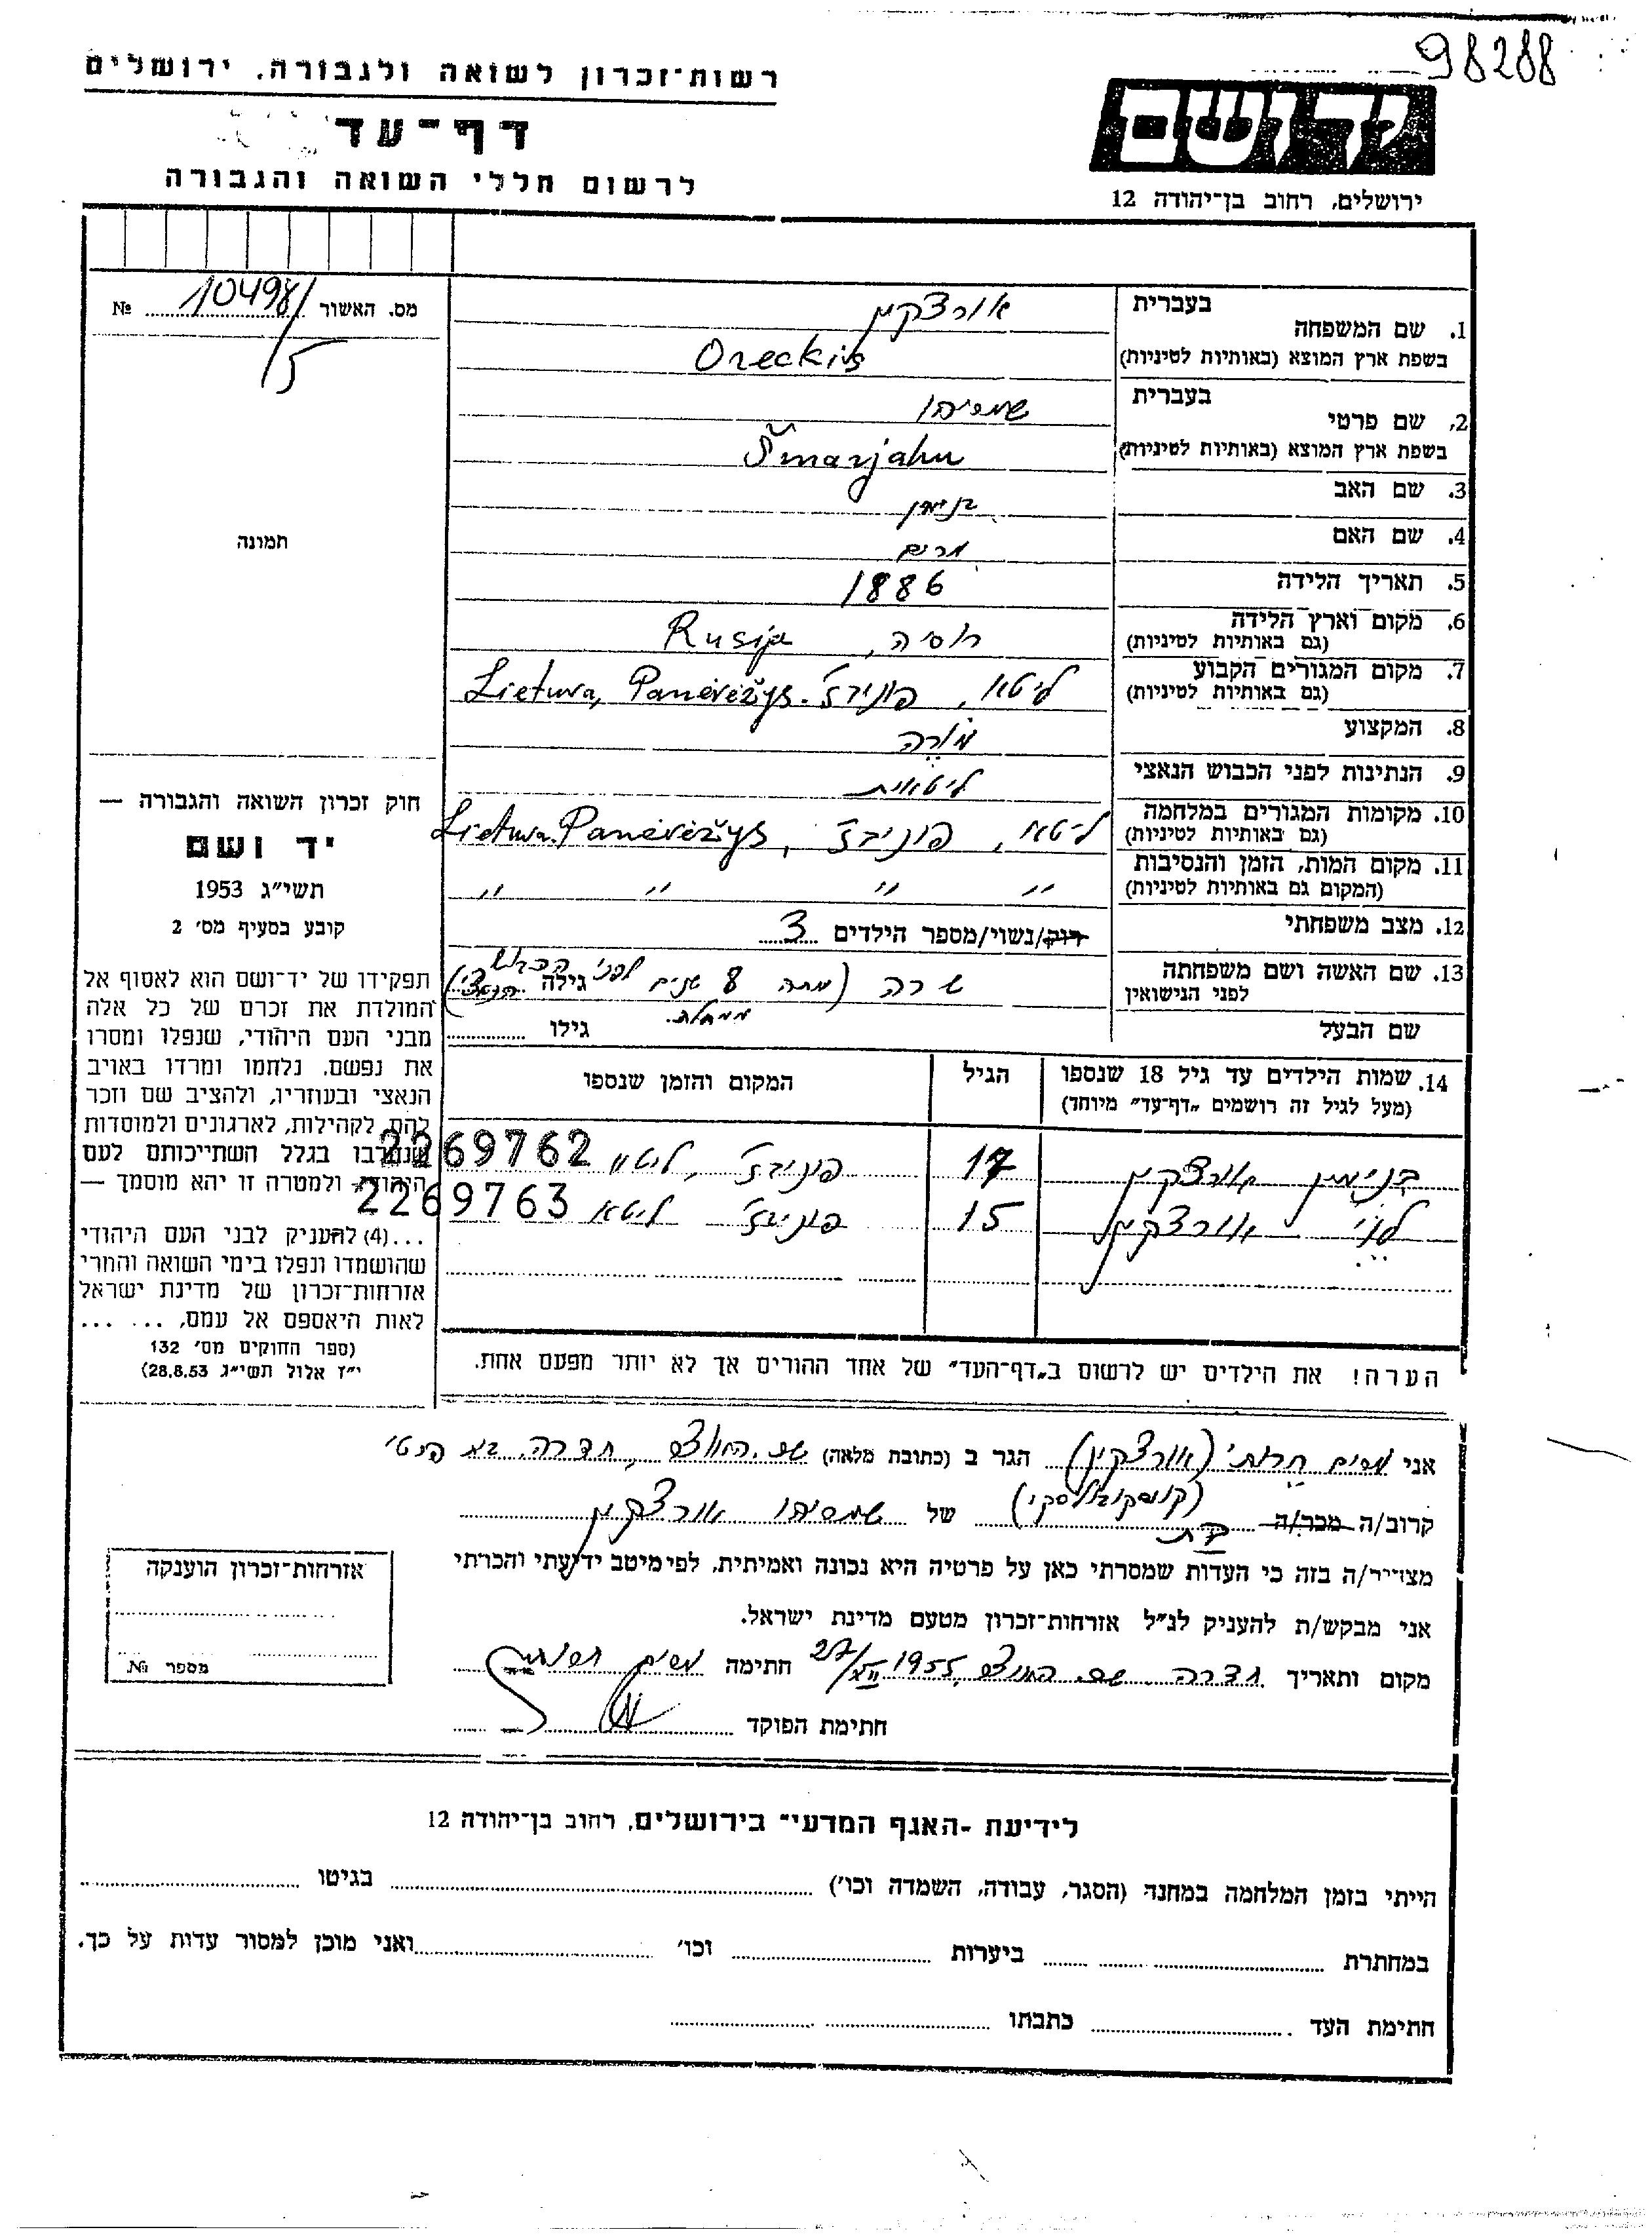 98288
רשות־זכרון לשואה ולגבורה. ירושלים
דף־עד
לרשום חללי השואה והגבורה
יד ושם
ירושלים, רחוב בן־יהודה 12
מס. האשור 10498/ №
15
תמונה
1. שם המשפחה
בעברית אורצקין
בשפת ארץ המוצא (באותיות לטיניות) Oreckis
2. שם פרטי
בעברית שמריהו
בשפת ארץ המוצא (באותיות לטיניות) Šmarjahu
3. שם האב בנימין
4. שם האם מרים
5. תאריך הלידה 1886
6. מקום וארץ הלידה
(גם באותיות לטיניות) רוסיה, Rusija
7. מקום המגורים הקבוע
(גם באותיות לטיניות) ליטא, פוניבז'. Lietuva, Panėvėžys
8. המקצוע מורה
9. הנתינות לפני הכבוש הנאצי ליטאית
10. מקומות המגורים במלחמה
(גם באותיות לטיניות) ליטא, פוניבז', Lietuva. Panėvėžys
11. מקום המות, הזמן והנסיבות
(המקום גם באותיות לטיניות) " " " "
12. מצב משפחתי רוק/נשוי/מספר הילדים 3
13. שם האשה ושם משפחתה
לפני הנישואין שרה (מתה 8 שנים לפני הכבוש הנאצי) גילה
ממחלה.
שם הבעל גילו
14. שמות הילדים עד גיל 18 שנספו הגיל המקום והזמן שנספו
(מעל לגיל זה רושמים „דף־עד״ מיוחד)
בנימין אורצקין 17 פוניבז', ליטא 2269762
לוי אורצקין 15 פוניבז' ליטא 2269763
הערה! את הילדים יש לרשום ב„דף־העד״ של אחד ההורים אך לא יותר מפעם אחת.
חוק זכרון השואה והגבורה —
יד ושם
תשי״ג 1953
קובע בסעיף מס׳ 2
תפקידו של יד־ושם הוא לאסוף אל
המולדת את זכרם של כל אלה
מבני העם היהודי, שנפלו ומסרו
את נפשם, נלחמו ומרדו באויב
הנאצי ובעוזריו, ולהציב שם וזכר
להם, לקהילות, לארגונים ולמוסדות
שנחרבו בגלל השתייכותם לעם
היהודי, ולמטרה זו יהא מוסמך —
...(4) להעניק לבני העם היהודי
שהושמדו ונפלו בימי השואה והמרי
אזרחות־זכרון של מדינת ישראל
לאות היאספם אל עמם, ... ...
(ספר החוקים מס׳ 132
י״ז אלול תשי״ג 28.8.53)
אני מרים (אורצקין) הגר ב (כתובת מלאה) שכ. , חדרה.
קרוב/ה מכר/ה בת של שמריהו אורצקין
מצהיר/ה בזה כי העדות שמסרתי כאן על פרטיה היא נכונה ואמיתית, לפי מיטב ידיעתי והכרתי
אני מבקש/ת להעניק לנ״ל אזרחות־זכרון מטעם מדינת ישראל.
מקום ותאריך חדרה שכ. 27/ 1955 חתימה מרים
חתימת הפוקד
אזרחות־זכרון הוענקה
מספר №
לידיעת ־האגף המדעי״ בירושלים, רחוב בן־יהודה 12
הייתי בזמן המלחמה במחנה (הסגר, עבודה, השמדה וכו׳) בגיטו
במחתרת ביערות וכו׳ ואני מוכן למסור עדות על כך.
חתימת העד כתבתו